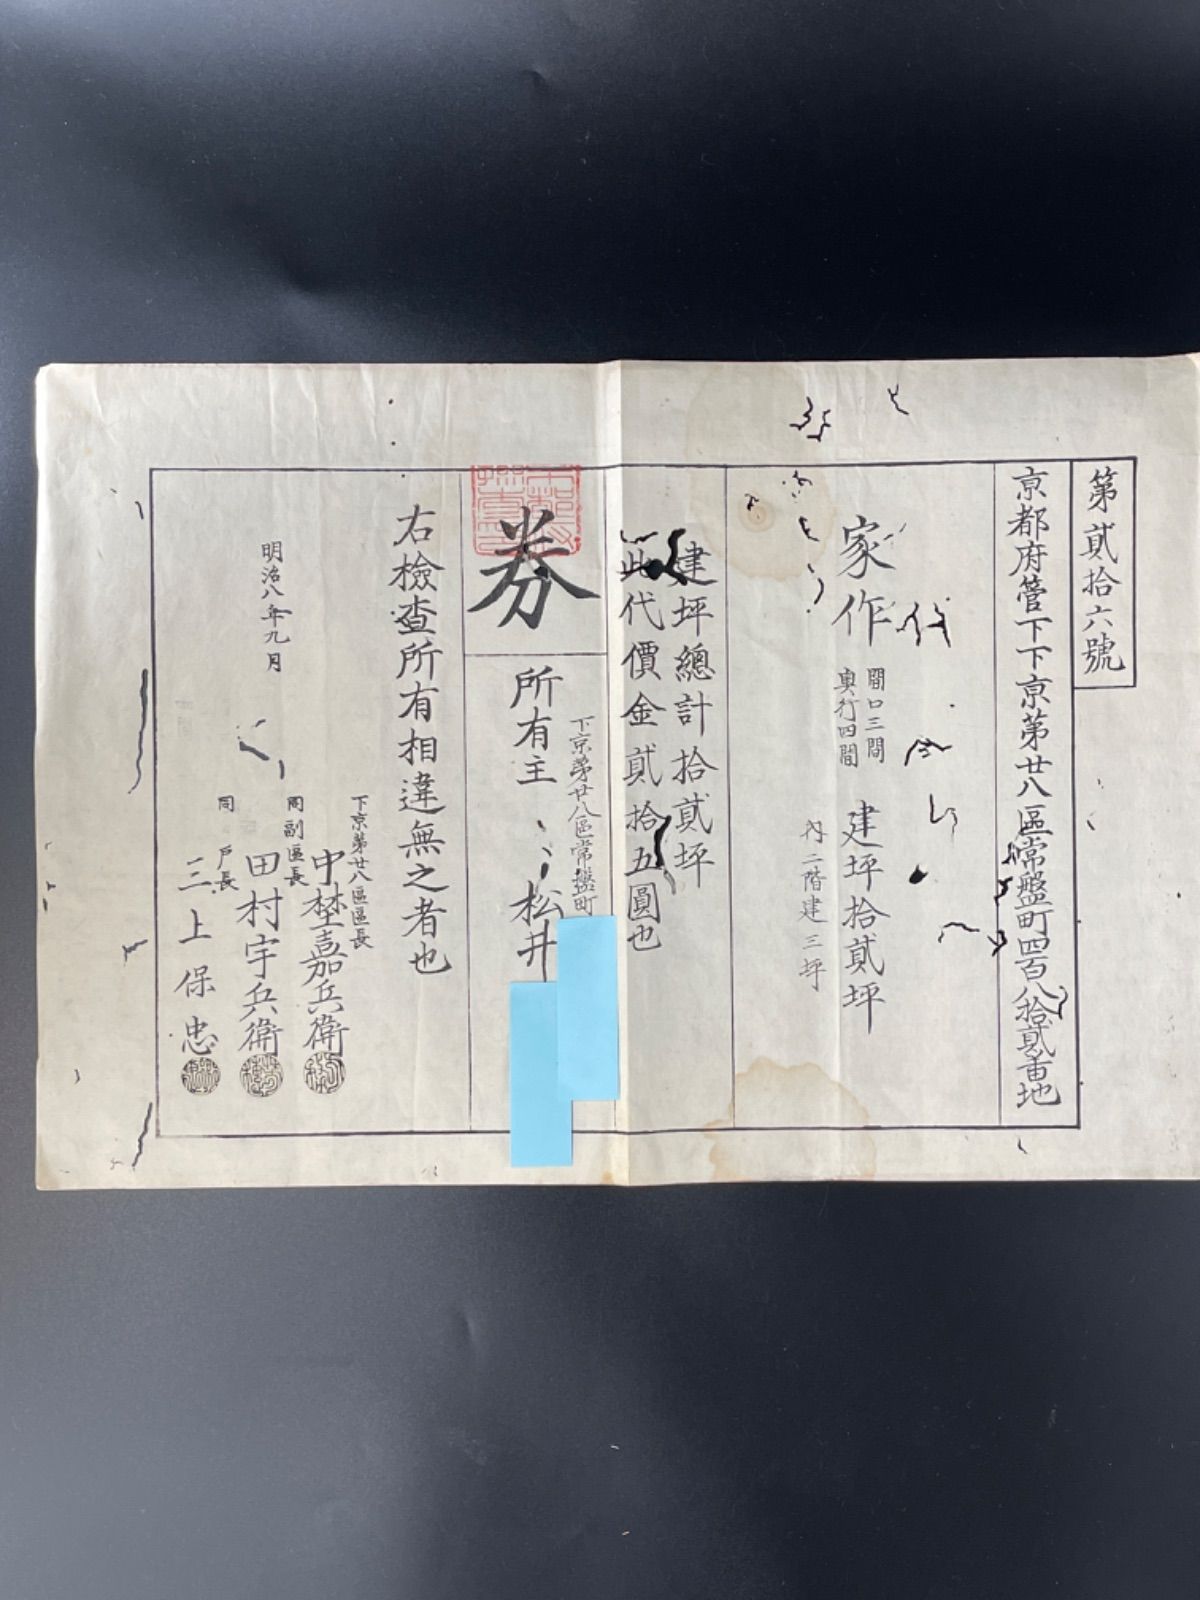 第貳拾六號
京都府管下下京第廿八區常盤町四百八拾貳番地
家作
間口三間
奥行四間
建坪拾貳坪
内二階建三坪
建坪總計拾貳坪
此代價金貳拾五圓也
券
下京第廿八區常盤町
所有主 松井
右檢査所有相違無之者也
明治八年九月
下京第廿八區區長
中埜嘉兵衛
同副區長
田村宇兵衛
同 戸長
三上保忠